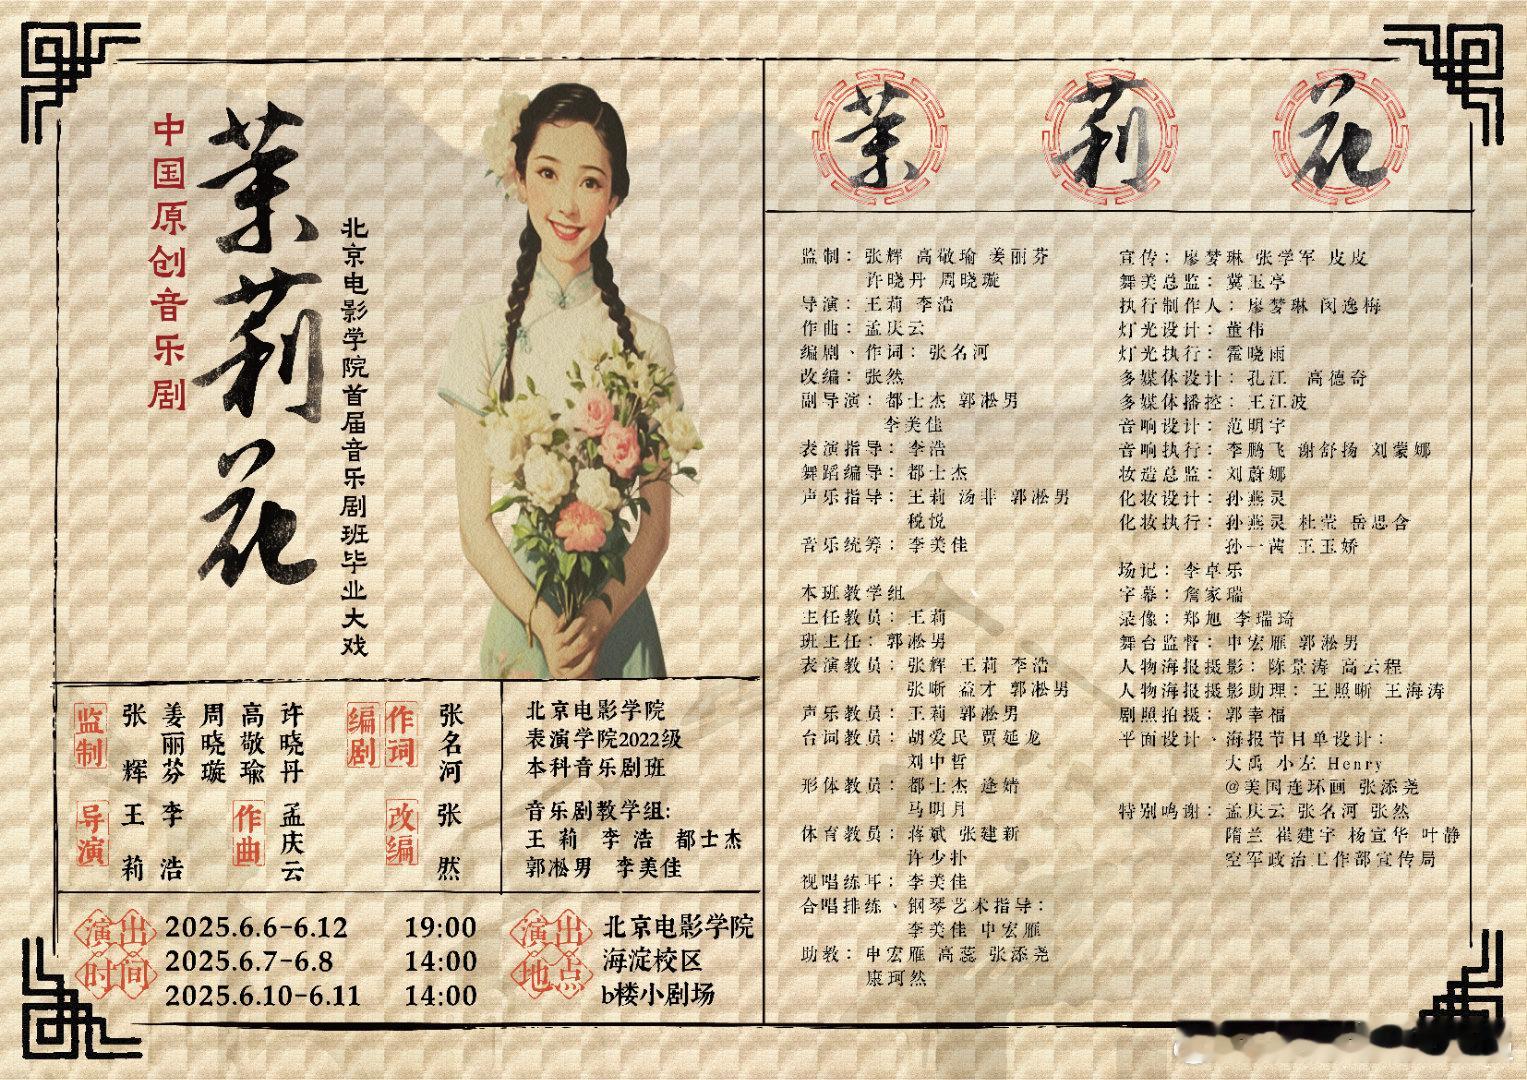 中国原创音乐剧
茉莉花
北京电影学院首届音乐剧班毕业大戏
监制
张辉
姜丽芬
周晓璇
高敬瑜
许晓丹
编剧
作词
张名河
导演
王莉
李浩
作曲
孟庆云
改编
张然
北京电影学院
表演学院2022级
本科音乐剧班
音乐剧教学组:
王莉 李浩 都士杰
郭凇男 李美佳
演出时间
2025.6.6-6.12 19:00
2025.6.7-6.8 14:00
2025.6.10-6.11 14:00
演出地点
北京电影学院
海淀校区
b楼小剧场
茉莉花
监制：张辉 高敬瑜 姜丽芬
许晓丹 周晓璇
导演：王莉 李浩
作曲：孟庆云
编剧、作词：张名河
改编：张然
副导演：都士杰 郭凇男
李美佳
表演指导：李浩
舞蹈编导：都士杰
声乐指导：王莉 汤非 郭凇男
税悦
音乐统筹：李美佳
本班教学组
主任教员：王莉
班主任：郭凇男
表演教员：张辉 王莉 李浩
张晰 益才 郭凇男
声乐教员：王莉 郭凇男
台词教员：胡爱民 贾延龙
刘中哲
形体教员：都士杰 逄婧
马明月
体育教员：蒋斌 张建新
许少扑
视唱练耳：李美佳
合唱排练、钢琴艺术指导：
李美佳 申宏雁
助教：申宏雁 高蕊 张添尧
康珂然
宣传：廖梦琳 张学军 皮皮
舞美总监：冀玉亭
执行制作人：廖梦琳 闵逸梅
灯光设计：董伟
灯光执行：霍晓雨
多媒体设计：孔江 高德奇
多媒体播控：王江波
音响设计：范明宇
音响执行：李鹏飞 谢舒扬 刘蒙娜
妆造总监：刘蔚娜
化妆设计：孙燕灵
化妆执行：孙燕灵 杜莹 岳思含
孙一茜 王玉娇
场记：李卓乐
字幕：詹家瑞
录像：郑旭 李瑞琦
舞台监督：申宏雁 郭凇男
人物海报摄影：陈景涛 高云程
人物海报摄影助理：王照晰 王海涛
剧照拍摄：郭幸福
平面设计、海报节目单设计：
大禹 小左 Henry
@美国连环画 张添尧
特别鸣谢：孟庆云 张名河 张然
隋兰 崔建宇 杨宣华 叶静
空军政治工作部宣传局